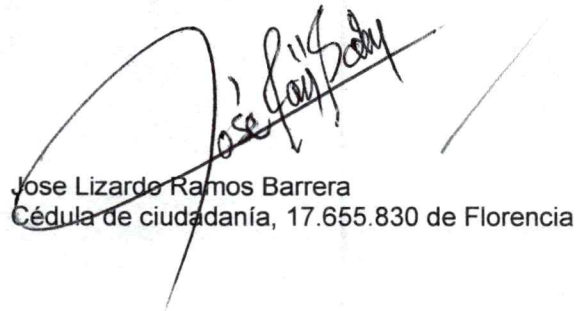 José
Jose Lizardo Ramos Barrera
Cédula de ciudadanía, 17.655.830 de Florencia